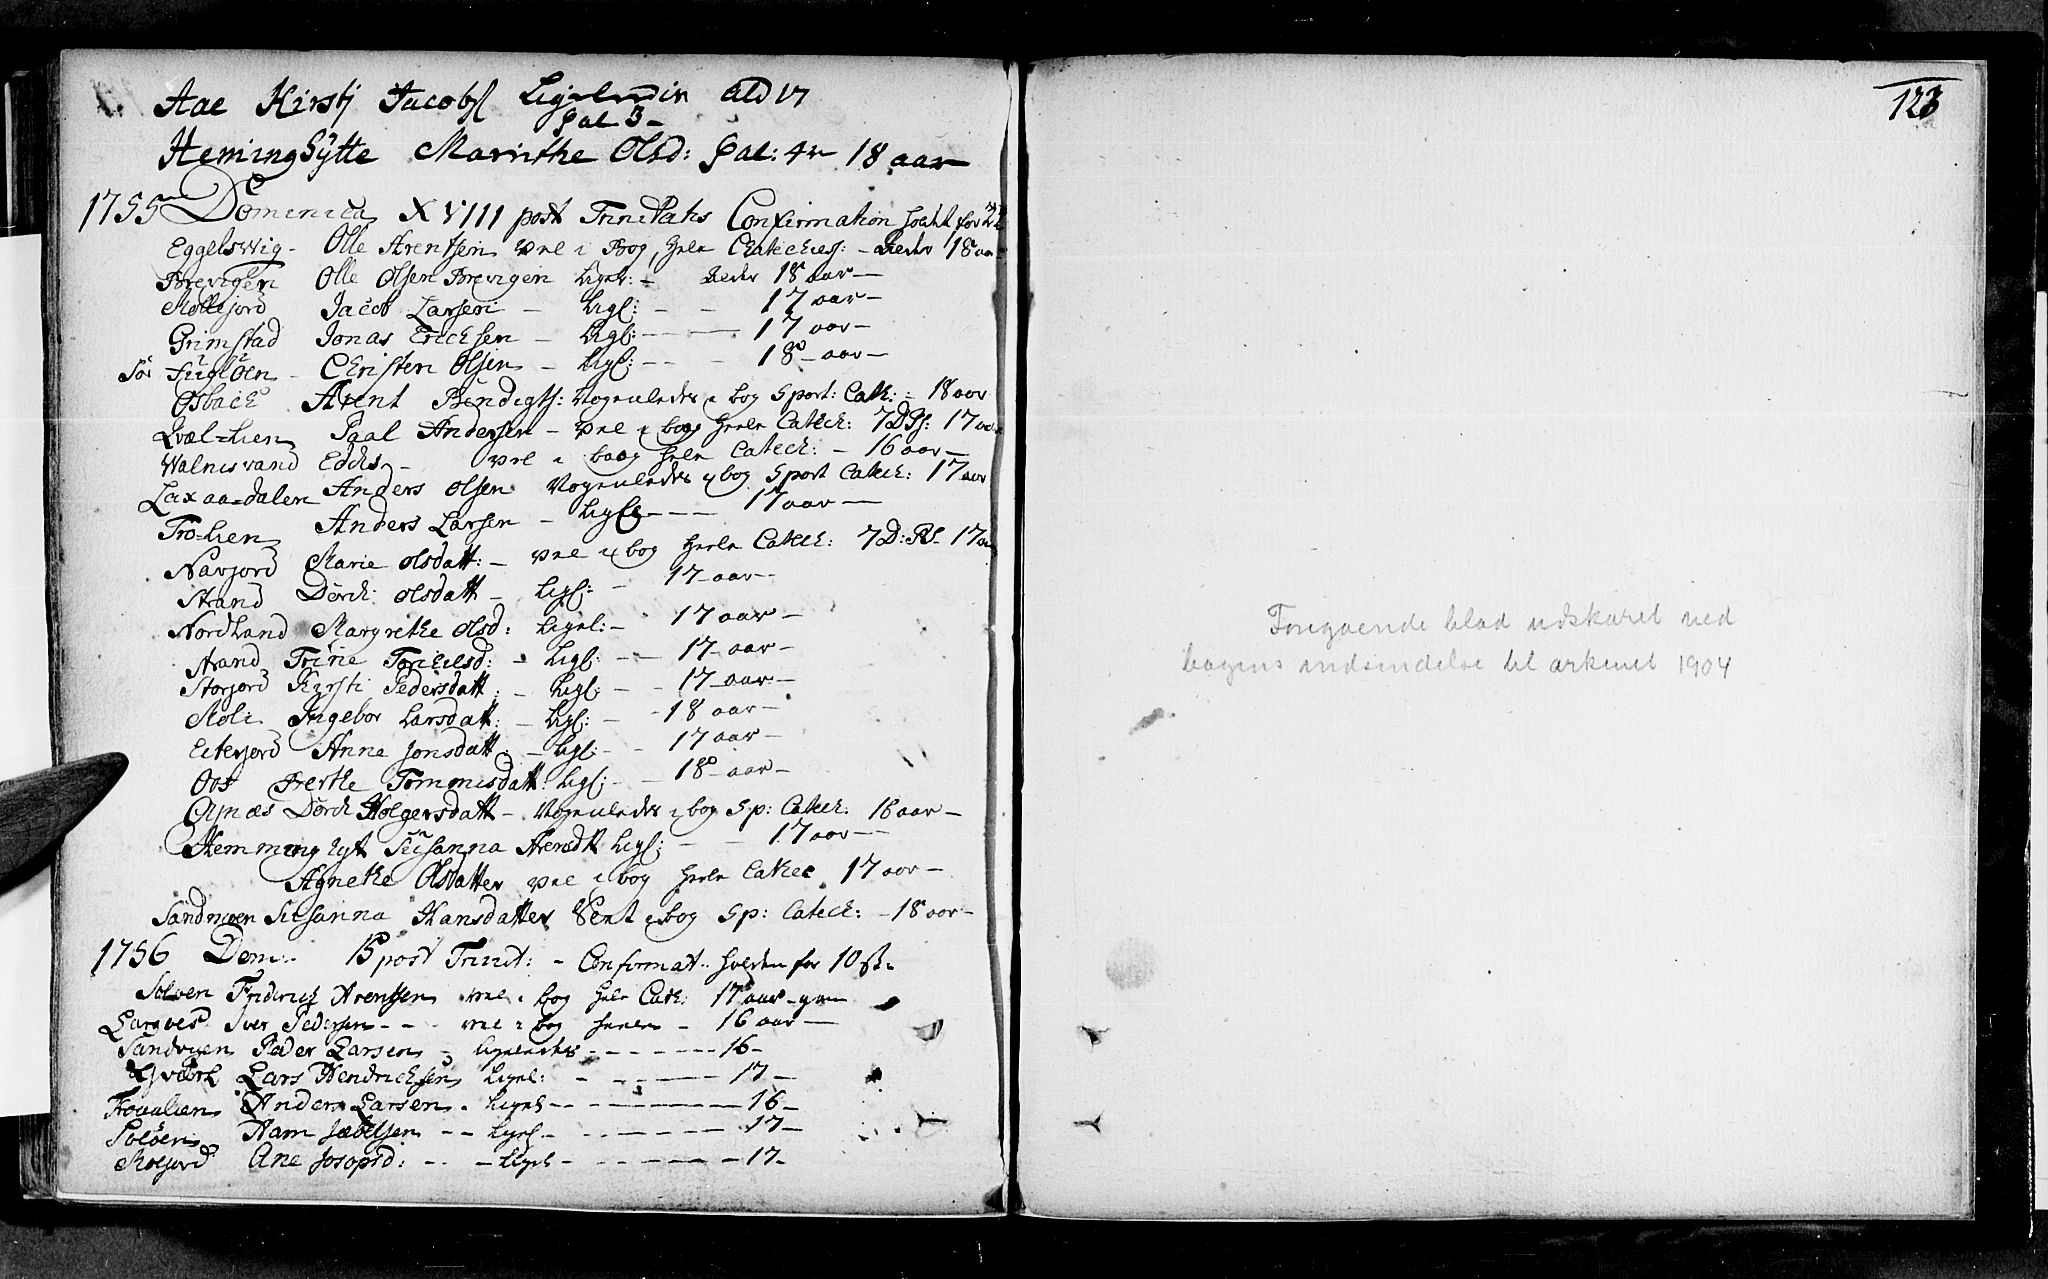 Aae Kirstj Jacobsl Ligeledis Ald 17
Sal 3 -
Heming Hÿtte Marithe Olsd: Sal: 4r 18 aar
1755 Dominica XVIII post Trinitatis Confirmation holdt for 22
Eggelswig - Olle Arentsen vel i Bog, Hele Chatechies: - alder 18 aar
Brevigen Olle Olsen Brevigen Ligel: - alder 18 aar -
Jacob Larsen - Ligl: - - 17 aar -
Grimstad Jonas Ericksen - Ligl: - - - 17 aar -
Sör Fügløen - Christen Olsen - Ligl: - - 18 - aar -
Osback Arent Bendigts: Nogenledes i bog Sport: Cath: - 18 aar
Qvæl=Lien Paal Andersen - vel i bog Heele Catech: 7 D Ps: 17 aar
Walnesvand Eddis - vel i baag Hele Catech: - 16 aar -
Laxaa=dalen Anders Olsen Nogenledes i bog Sport Catech: 17 aar
Tro=Lien Anders Larsen - Ligl - - - 17 aar -
Navjord Marie Olsdatt: - vel i bog Heele Catech: 7 D: Ps - 17 a
Strand Dorch: Olsdatt - Ligl: - 17 - aar -
Nordland Margrethe Olsd: Ligel: - 17 aar -
Strand Trine Torchelsd: - Ligl: - - 17 - aar -
Storjord Kirsti Pedersdatt: - Ligl: - - 17 - aar -
Moli Ingebor Larsdatt: - Ligl: - 18 aar -
Eiterjord Anne Jonsdatt: - Ligl: - - 17 aar -
Oos Berthe Tommisdatt: Ligl: - - 18 - aar -
Dorch Holgersdatt - Nogenledes i bog Sp: Catech: 18 aar -
Hemming Hyt Susanna Arensdtt Ligl: - - 17 aar -
Agnethe Olsdatter vel i bog Heele Cathec 17 aar -
Sandnæen Susanna Hansdatter Vent i bog Sp: Catech: - 18 aar -
1756 Dom: 15 post Trinit: - Confirmat: holden for 10 st:
Solöen Friderich Arentsen vel i bog Hele Cath: 17 aar - gm
Iver Pedersen - - - vel i bog Heele - 16 aar -
Peder Larsen - Ligeledes - - - - - 16 -
Lars Hendrichsen Ligel: - - - - 17 -
Trolien Anders Larsen - Ligel - - - - - 16 -
Solöen - - Ligl - - - - - 17 -
Moljord Ane Josopsd: - - - Ligel - - - - 17 -
123
Foregaaende blad udskaret ved
bogens indsendelse til arkivet 1904